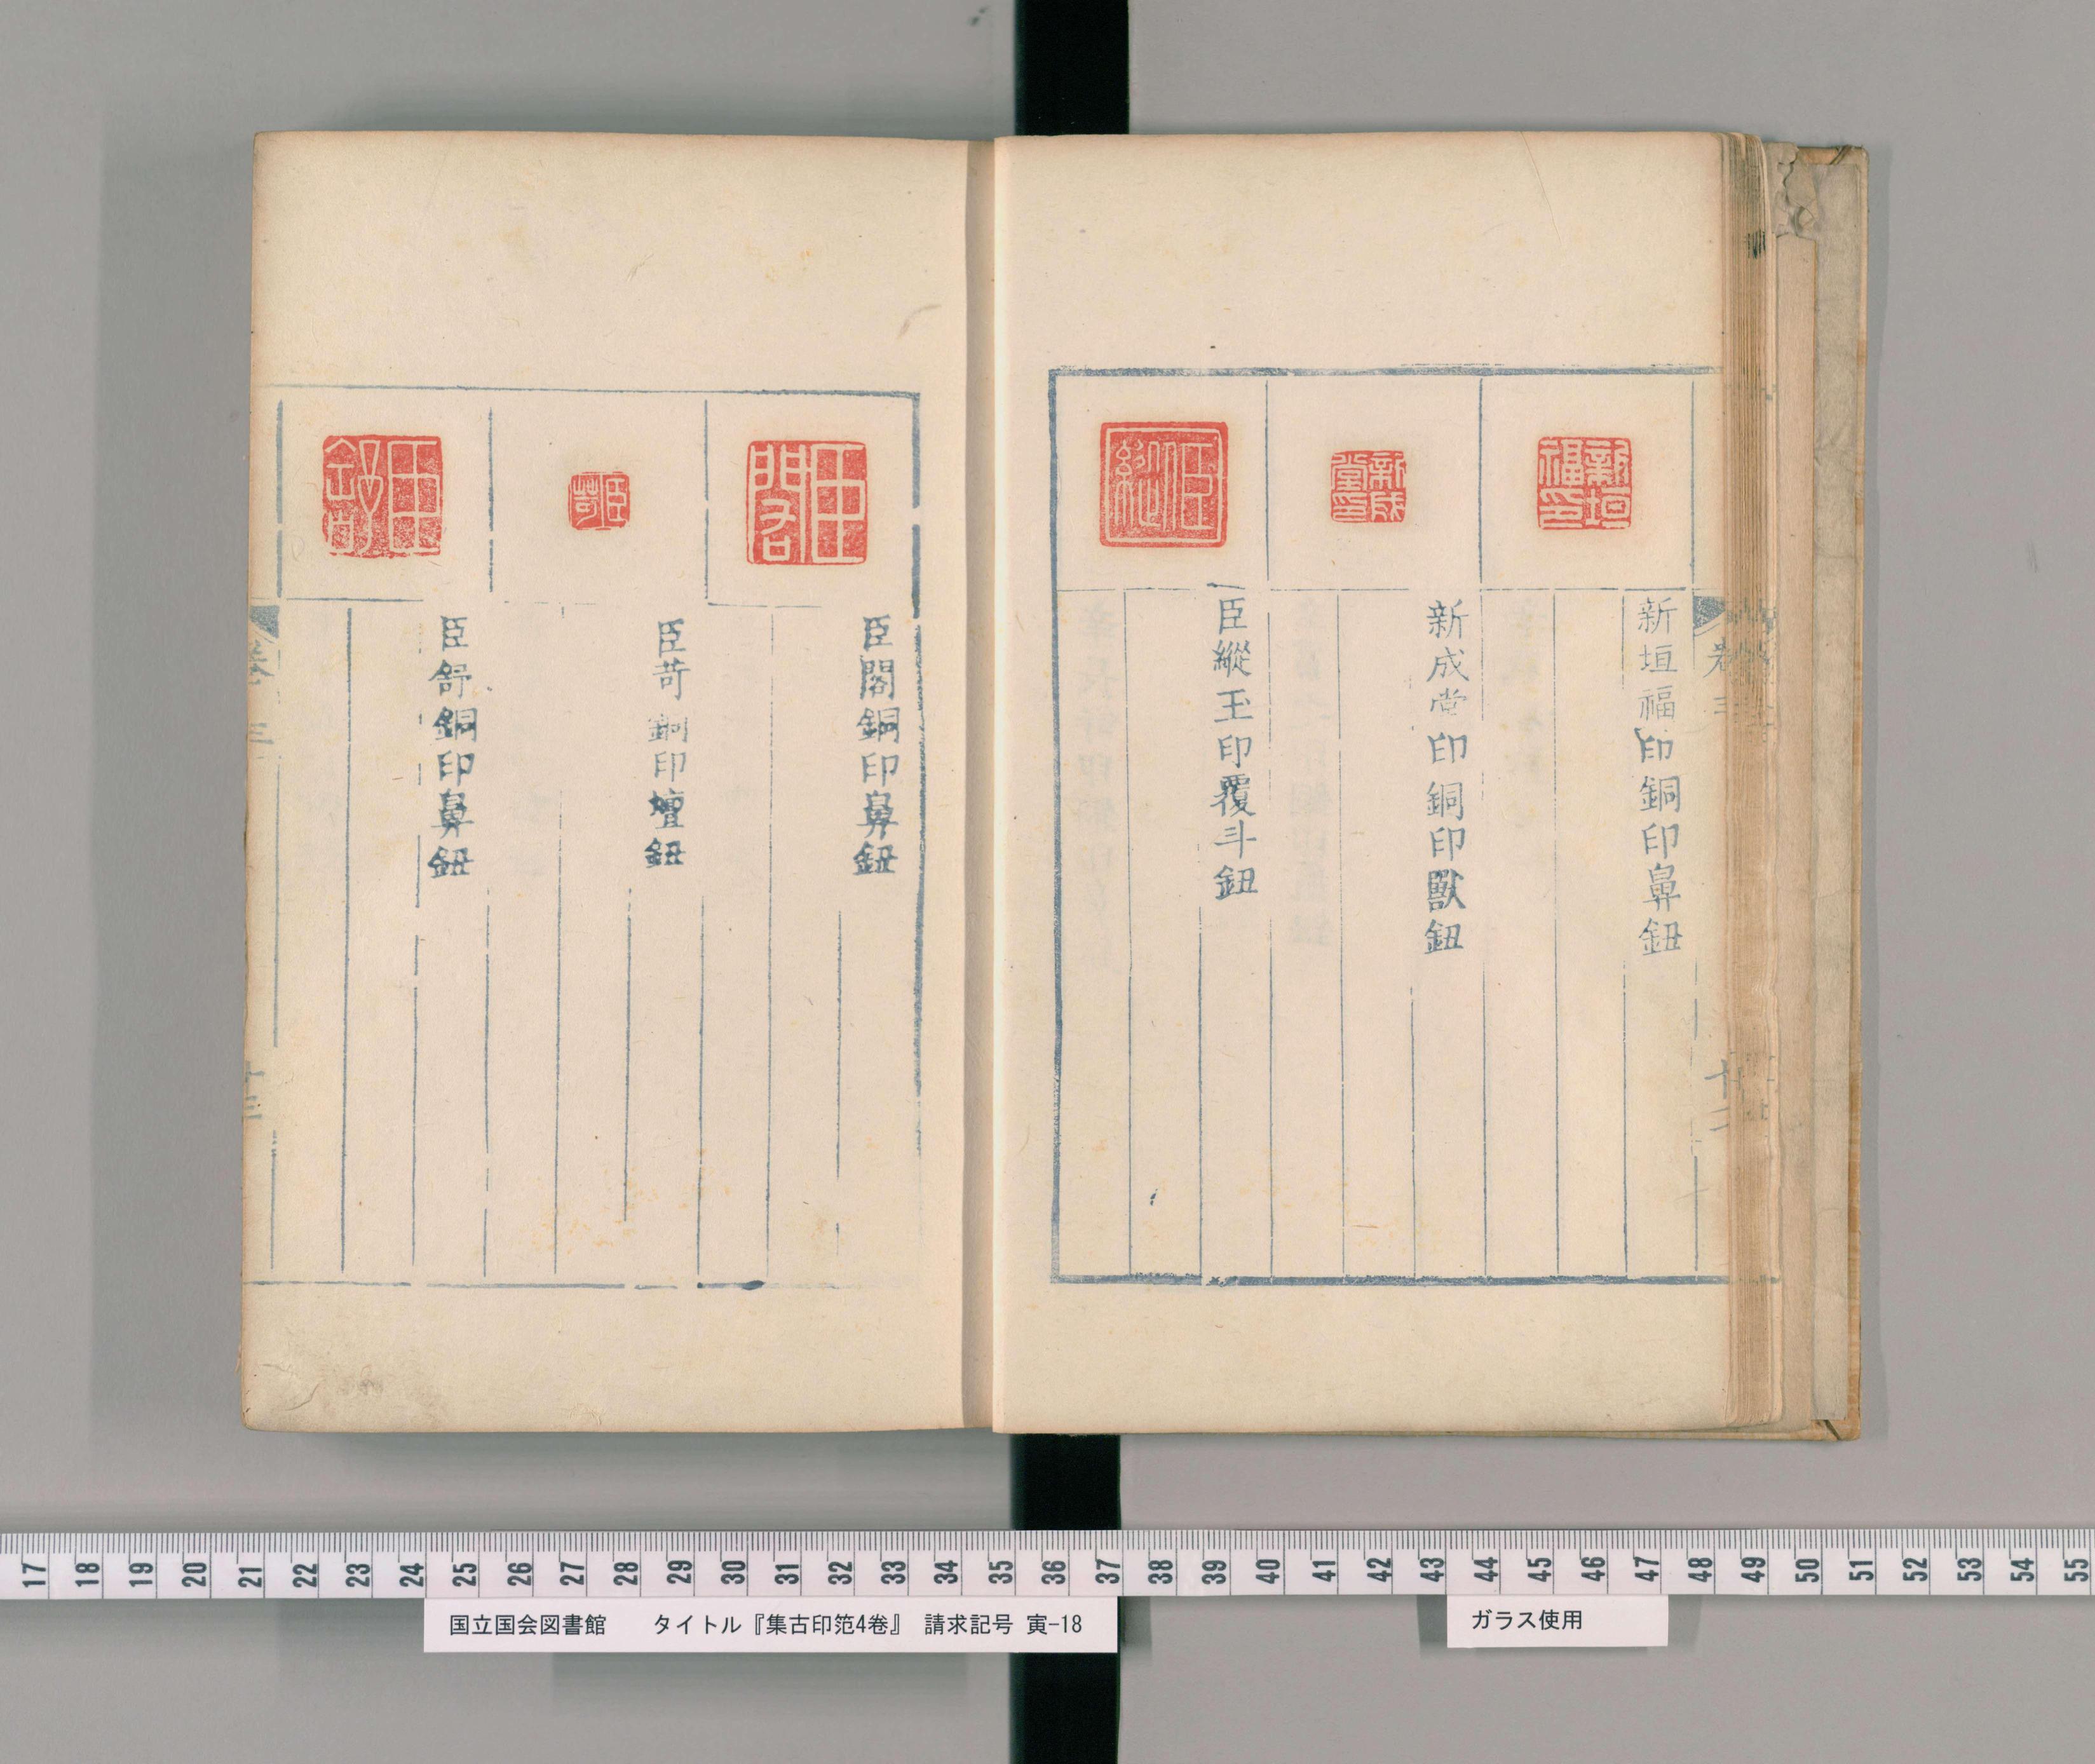 新垣福印
新垣福印銅印鼻鈕
新成堂印
新成堂印銅印獸鈕
臣縱
臣縱玉印覆斗鈕
臣閣
臣閣銅印鼻鈕
臣苛
臣苛銅印壇鈕
臣舒
臣舒銅印鼻鈕
卷三
廿二
卷三
廿三
17 18 19 20 21 22 23 24 25 26 27 28 29 30 31 32 33 34 35 36 37 38 39 40 41 42 43 44 45 46 47 48 49 50 51 52 53 54 55
国立国会図書館 タイトル『集古印笵4巻』 請求記号 寅-18
ガラス使用